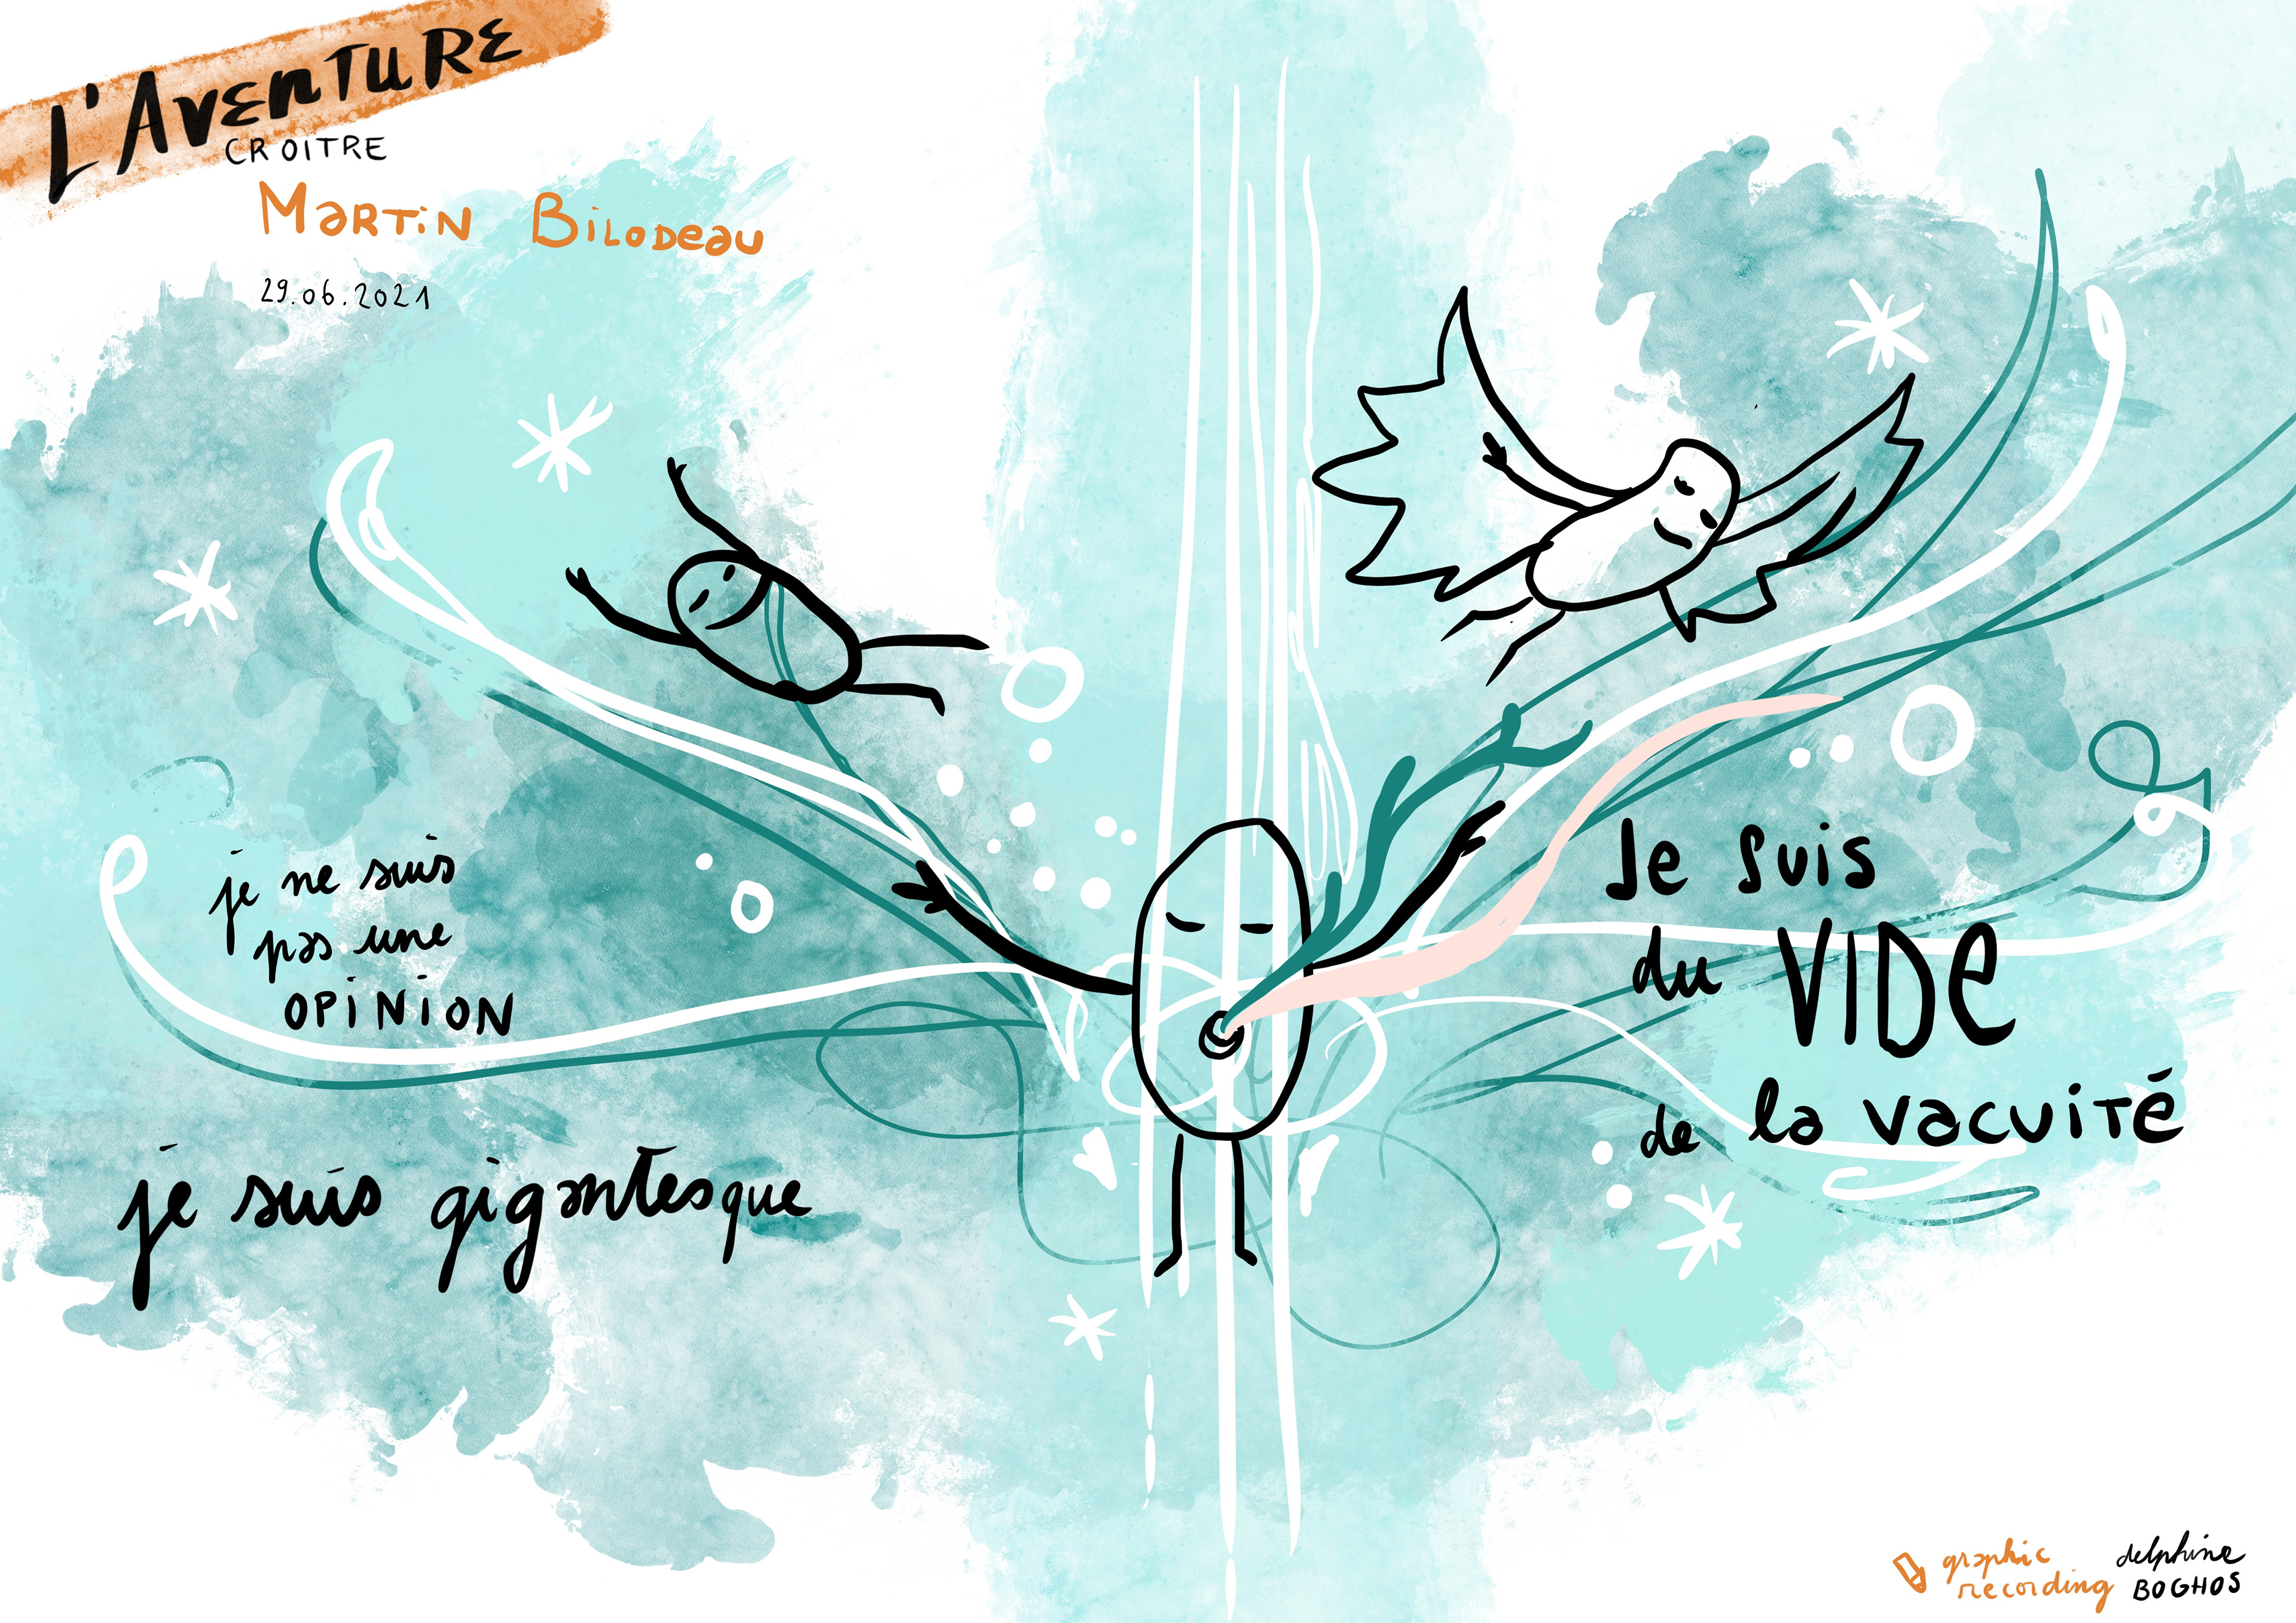 L'AVENTURE
CROITRE
MARTIN BILODEAU
29.06.2021
je ne suis
pas une
OPINION
je suis gigantesque
Je suis
du VIDE
de la vacuité
graphic
recording
delphine
BOGHOS